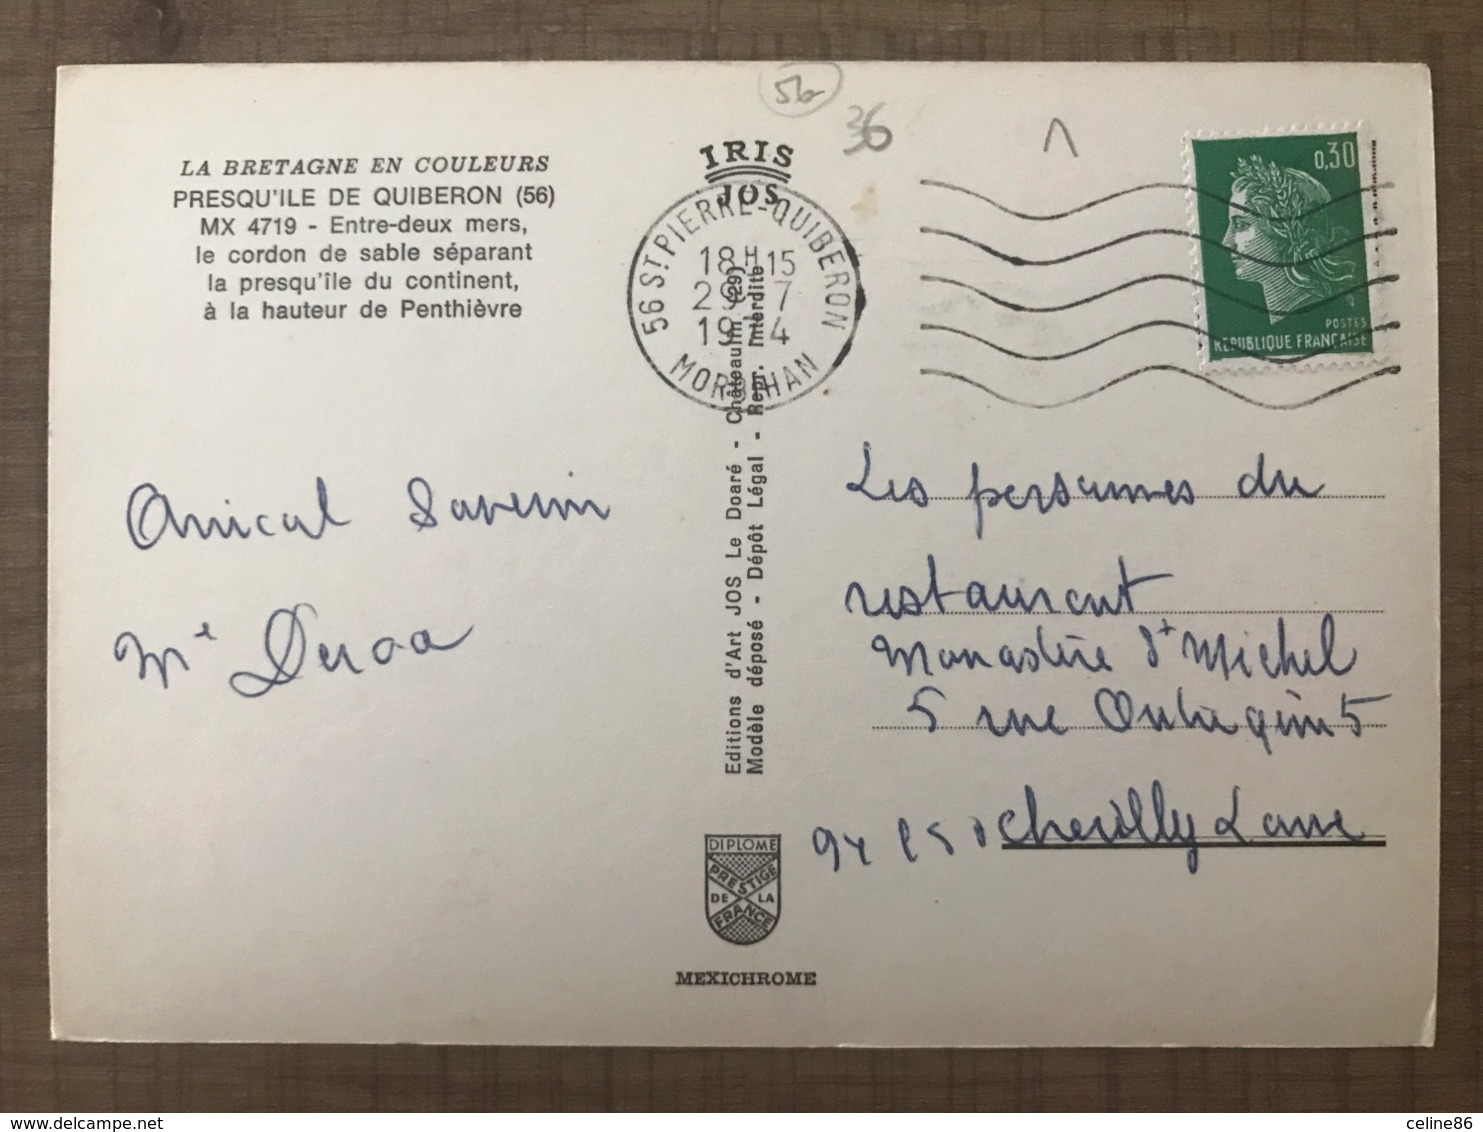 56
36
LA BRETAGNE EN COULEURS
PRESQU'ILE DE QUIBERON (56)
MX 4719 - Entre-deux mers,
le cordon de sable séparant
la presqu'île du continent,
à la hauteur de Penthièvre
IRIS
JOS
56 ST PIERRE-QUIBERON
18H15
7
1974
MORBIHAN
0,30
POSTES
REPUBLIQUE FRANÇAISE
Amical Souvenir
Me
Editions d'Art JOS Le Doaré - Châteaulin (29)
Modèle déposé - Dépôt Légal - Repr. Interdite
Les personnes du
restaurant
Monastère St Michel
5 rue
94150 Chevilly Larue
DIPLOME
PRESTIGE
DE LA
FRANCE
MEXICHROME
delcampe.net
celine86